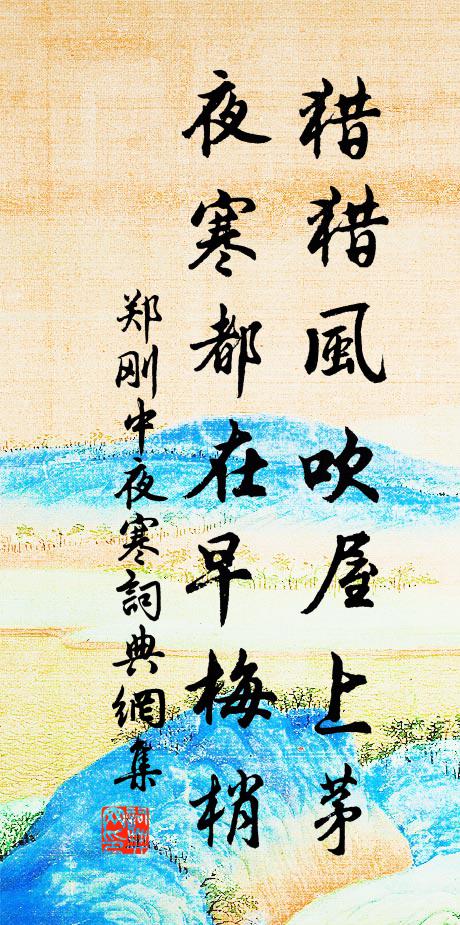 猎猎風吹屋上茅
夜寒都在早梅梢
郑刚中夜寒詞典網集